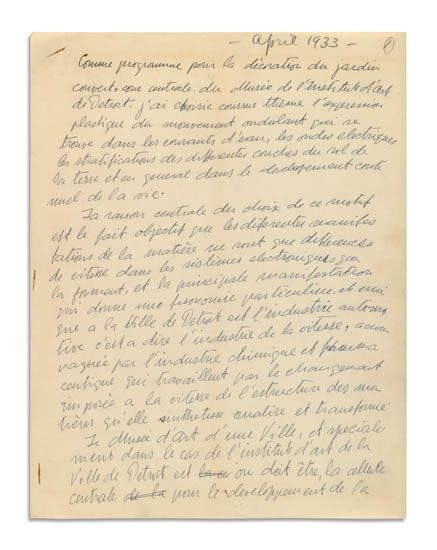 — April 1933 —
Comme programme pour la décoration du jardin
couvert, cour centrale, du Musée de l'Institut d'art
de Detroit. j'ai choisie comme thème l'expression
plastique du mouvement ondulant qui se
trouve dans les courants d'eau, les ondes electriques
les stratifications des differentes couches du sol de
la terre et en general dans le developement conti
nuel de la vie.
La raison centrale du choix de ce motif
est le fait objectif que les diferentes manifes
tations de la matière ne sont que diferences
de vitesse dans les sistèmes electroniques que
la forment, et la principale manifestation
qui donne une fisonomie particuliere et uni
que a la Ville de Detroit est l'industrie automo
tive c'est a dire l'industrie de la vitesse, acom
pagnée par l'industrie chimique et pharma
ceutique qui travaillent par le changement
imposée a la vitesse de l'estructure des ma
tières qu'elle sinthetise analise et transforme
Le Musée d'Art d'une Ville, et speciale
ment dans le cas de l'institut d'art de la
Ville de Detroit est ou doit être, la cellule
centrale pour le developpement de la